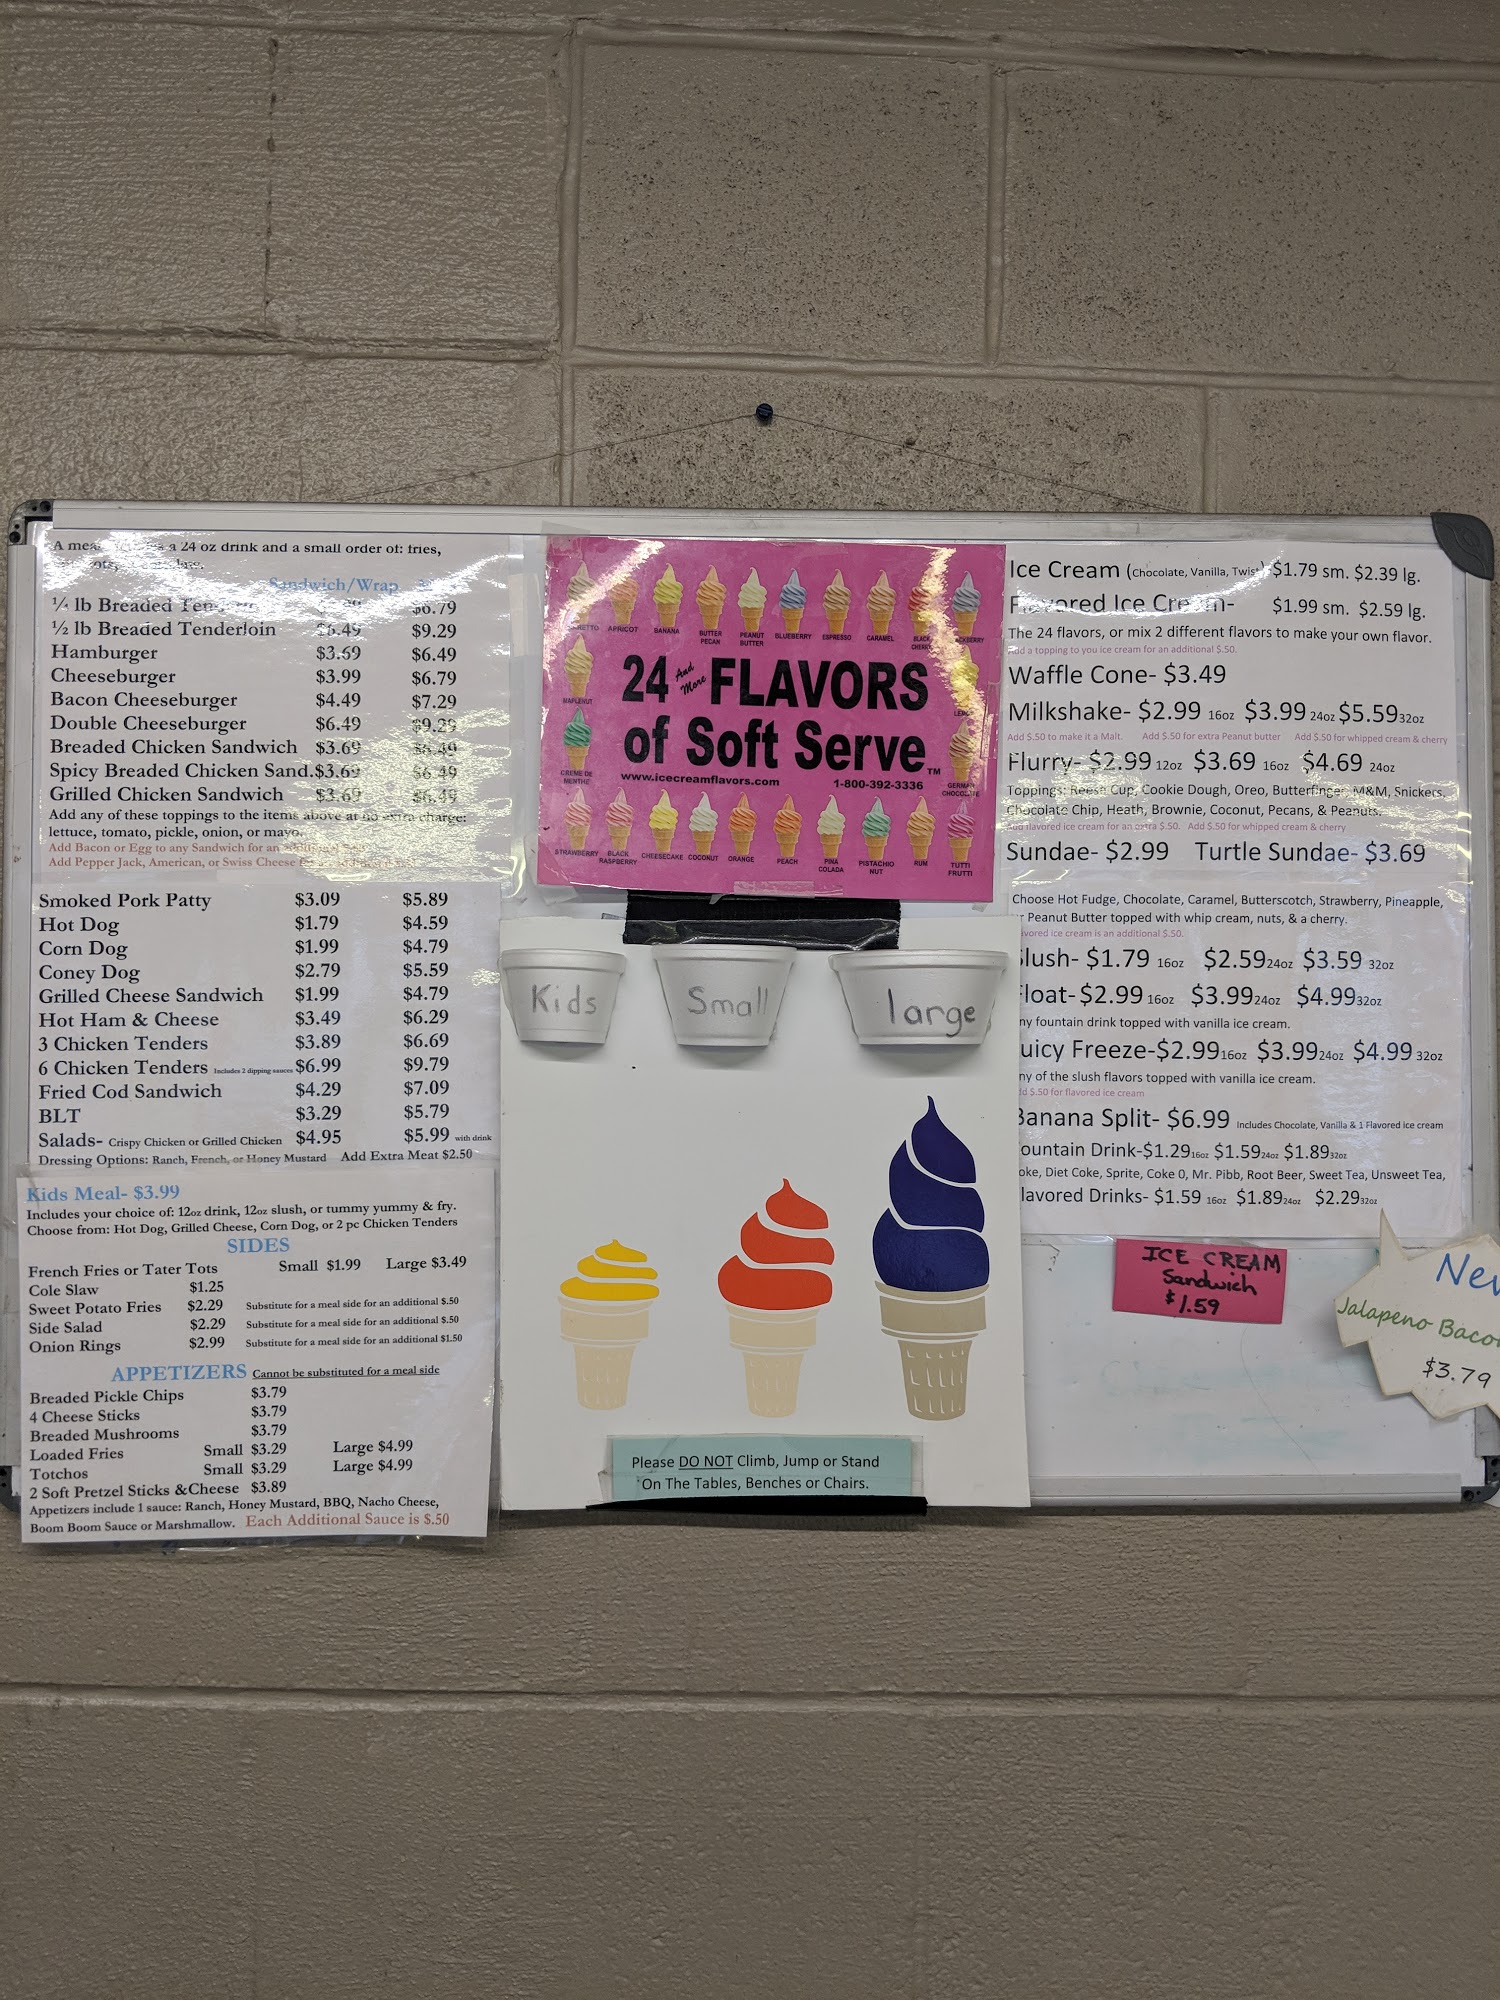 a 24 oz drink and a small order of: fries,
Sandwich/Wrap
¼ lb Breaded $6.79
½ lb Breaded Tenderloin $6.49 $9.29
Hamburger $3.69 $6.49
Cheeseburger $3.99 $6.79
Bacon Cheeseburger $4.49 $7.29
Double Cheeseburger $6.49 $9.29
Breaded Chicken Sandwich $3.69 $6.49
Spicy Breaded Chicken Sand.$3.69 $6.49
Grilled Chicken Sandwich $3.69 $6.49
Add any of these toppings to the items above at no extra charge:
lettuce, tomato, pickle, onion, or mayo.
Add Bacon or Egg to any Sandwich for an
Add Pepper Jack, American, or Swiss Cheese
Smoked Pork Patty $3.09 $5.89
Hot Dog $1.79 $4.59
Corn Dog $1.99 $4.79
Coney Dog $2.79 $5.59
Grilled Cheese Sandwich $1.99 $4.79
Hot Ham & Cheese $3.49 $6.29
3 Chicken Tenders $3.89 $6.69
6 Chicken Tenders Includes 2 dipping sauces $6.99 $9.79
Fried Cod Sandwich $4.29 $7.09
BLT $3.29 $5.79
Salads- Crispy Chicken or Grilled Chicken $4.95 $5.99 with drink
Dressing Options: Ranch, French, or Honey Mustard Add Extra Meat $2.50
Kids Meal- $3.99
Includes your choice of: 12oz drink, 12oz slush, or tummy yummy & fry.
Choose from: Hot Dog, Grilled Cheese, Corn Dog, or 2 pc Chicken Tenders
SIDES
French Fries or Tater Tots Small $1.99 Large $3.49
Cole Slaw $1.25
Sweet Potato Fries $2.29 Substitute for a meal side for an additional $.50
Side Salad $2.29 Substitute for a meal side for an additional $.50
Onion Rings $2.99 Substitute for a meal side for an additional $1.50
APPETIZERS Cannot be substituted for a meal side
Breaded Pickle Chips $3.79
4 Cheese Sticks $3.79
Breaded Mushrooms $3.79
Loaded Fries Small $3.29 Large $4.99
Totchos Small $3.29 Large $4.99
2 Soft Pretzel Sticks &Cheese $3.89
Appetizers include 1 sauce: Ranch, Honey Mustard, BBQ, Nacho Cheese,
Boom Boom Sauce or Marshmallow. Each Additional Sauce is $.50
APRICOT BANANA BUTTER PECAN PEANUT BUTTER BLUEBERRY ESPRESSO CARAMEL BLACK CHERRY
24 And More FLAVORS
of Soft Serve™
www.icecreamflavors.com 1-800-392-3336
MAPLENUT
CREME DE MENTHE
GERMAN CHOCOLATE
STRAWBERRY BLACK RASPBERRY CHEESECAKE COCONUT ORANGE PEACH PINA COLADA PISTACHIO NUT RUM TUTTI FRUTTI
Kids
Small
large
Please DO NOT Climb, Jump or Stand
On The Tables, Benches or Chairs.
Ice Cream (Chocolate, Vanilla, Twist) $1.79 sm. $2.39 lg.
Flavored Ice Cream- $1.99 sm. $2.59 lg.
The 24 flavors, or mix 2 different flavors to make your own flavor.
Add a topping to you ice cream for an additional $.50.
Waffle Cone- $3.49
Milkshake- $2.99 16oz $3.99 24oz $5.59 32oz
Add $.50 to make it a Malt. Add $.50 for extra Peanut butter Add $.50 for whipped cream & cherry
Flurry- $2.99 12oz $3.69 16oz $4.69 24oz
Toppings: Reese Cup, Cookie Dough, Oreo, Butterfinger, M&M, Snickers,
Chocolate Chip, Heath, Brownie, Coconut, Pecans, & Peanuts.
Add flavored ice cream for an extra $.50. Add $.50 for whipped cream & cherry
Sundae- $2.99 Turtle Sundae- $3.69
Choose Hot Fudge, Chocolate, Caramel, Butterscotch, Strawberry, Pineapple,
r Peanut Butter topped with whip cream, nuts, & a cherry.
avored ice cream is an additional $.50.
lush- $1.79 16oz $2.59 24oz $3.59 32oz
loat- $2.99 16oz $3.99 24oz $4.99 32oz
ny fountain drink topped with vanilla ice cream.
uicy Freeze-$2.99 16oz $3.99 24oz $4.99 32oz
ny of the slush flavors topped with vanilla ice cream.
dd $.50 for flavored ice cream
Banana Split- $6.99 Includes Chocolate, Vanilla & 1 Flavored ice cream
ountain Drink-$1.29 16oz $1.59 24oz $1.89 32oz
oke, Diet Coke, Sprite, Coke 0, Mr. Pibb, Root Beer, Sweet Tea, Unsweet Tea,
lavored Drinks- $1.59 16oz $1.89 24oz $2.29 32oz
ICE CREAM
Sandwich
$1.59
New
Jalapeno Bacon
$3.79